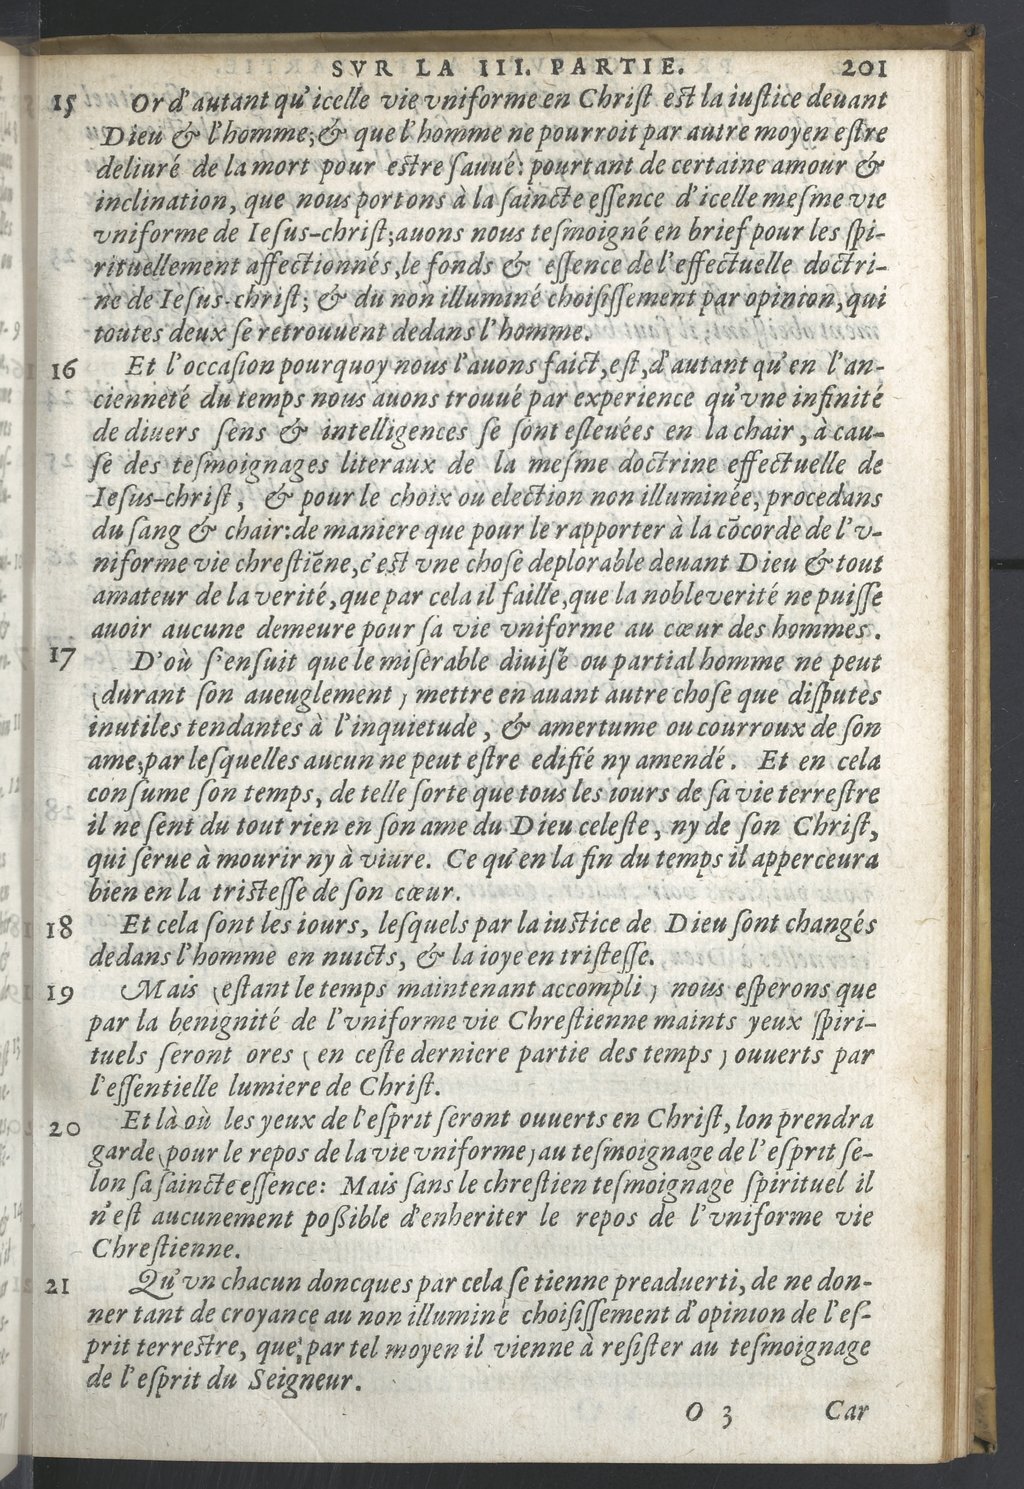 SVR LA III. PARTIE. 201
15 Or d'autant qu'icelle vie vniforme en Chriſt eſt la iuſtice deuant
Dieu & l'homme; & que l'homme ne pourroit par autre moyen eſtre
deliuré de la mort pour eſtre ſauué: pourtant de certaine amour &
inclination, que nous portons à la ſaincte eſſence d'icelle meſme vie
vniforme de Ieſus-chriſt; auons nous teſmoigné en brief pour les ſpi-
rituellement affectionnés, le fonds & eſſence de l'effectuelle doctri-
ne de Ieſus-chriſt; & du non illuminé choiſiſſement par opinion, qui
toutes deux ſe retrouuent dedans l'homme.
16 Et l'occaſion pourquoy nous l'auons faict, eſt, d'autant qu'en l'an-
cienneté du temps nous auons trouué par experience qu'vne infinité
de diuers ſens & intelligences ſe ſont eſleuées en la chair, à cau-
ſe des teſmoignages literaux de la meſme doctrine effectuelle de
Ieſus-chriſt, & pour le choix ou election non illuminée, procedans
du ſang & chair: de maniere que pour le rapporter à la cōcorde de l'v-
niforme vie chreſtiēne, c'eſt vne choſe deplorable deuant Dieu & tout
amateur de la verité, que par cela il faille, que la noble verité ne puiſſe
auoir aucune demeure pour ſa vie vniforme au cœur des hommes.
17 D'où s'enſuit que le miſerable diuiſé ou partial homme ne peut
(durant ſon aueuglement) mettre en auant autre choſe que diſputes
inutiles tendantes à l'inquietude, & amertume ou courroux de ſon
ame; par leſquelles aucun ne peut eſtre edifié ny amendé. Et en cela
conſume ſon temps, de telle ſorte que tous les iours de ſa vie terreſtre
il ne ſent du tout rien en ſon ame du Dieu celeſte, ny de ſon Chriſt,
qui ſerue à mourir ny à viure. Ce qu'en la fin du temps il apperceura
bien en la triſteſſe de ſon cœur.
18 Et cela ſont les iours, leſquels par la iuſtice de Dieu ſont changés
dedans l'homme en nuicts, & la ioye en triſteſſe.
19 Mais (eſtant le temps maintenant accompli) nous eſperons que
par la benignité de l'vniforme vie Chreſtienne maints yeux ſpiri-
tuels ſeront ores (en ceſte derniere partie des temps) ouuerts par
l'eſſentielle lumiere de Chriſt.
20 Et là où les yeux de l'eſprit ſeront ouuerts en Chriſt, lon prendra
garde (pour le repos de la vie vniforme) au teſmoignage de l'eſprit ſe-
lon ſa ſaincte eſſence: Mais ſans le chreſtien teſmoignage ſpirituel il
n'eſt aucunement poßible d'enheriter le repos de l'vniforme vie
Chreſtienne.
21 Qu'vn chacun doncques par cela ſe tienne preaduerti, de ne don-
ner tant de croyance au non illuminé choiſiſſement d'opinion de l'eſ-
prit terreſtre, que, par tel moyen il vienne à reſiſter au teſmoignage
de l'eſprit du Seigneur.
O 3 Car